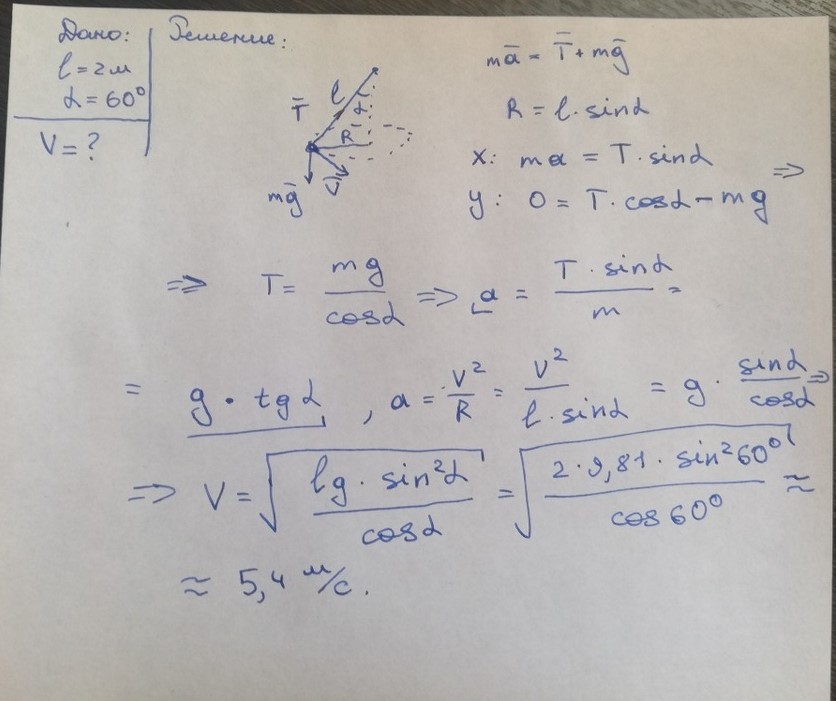 Дано:
l = 2м
α = 60°
V = ?
Решение:
T̄
l
α
R
mḡ
V̄
mā = T̄ + mḡ
R = l · sinα
x: ma = T · sinα
y: 0 = T · cosα - mg ⇒
⇒ T = mg / cosα ⇒ a = T · sinα / m =
= g · tgα , a = V² / R = V² / l · sinα = g · sinα / cosα ⇒
⇒ V = √(lg · sin²α / cosα) = √(2 · 9,81 · sin²60° / cos60°) ≈
≈ 5,4 м/с.